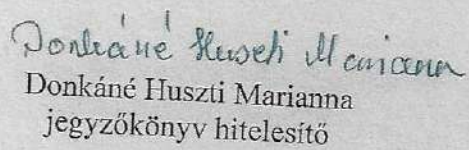 Donkáné Huszti Marianna
Donkáné Huszti Marianna
jegyzőkönyv hitelesítő